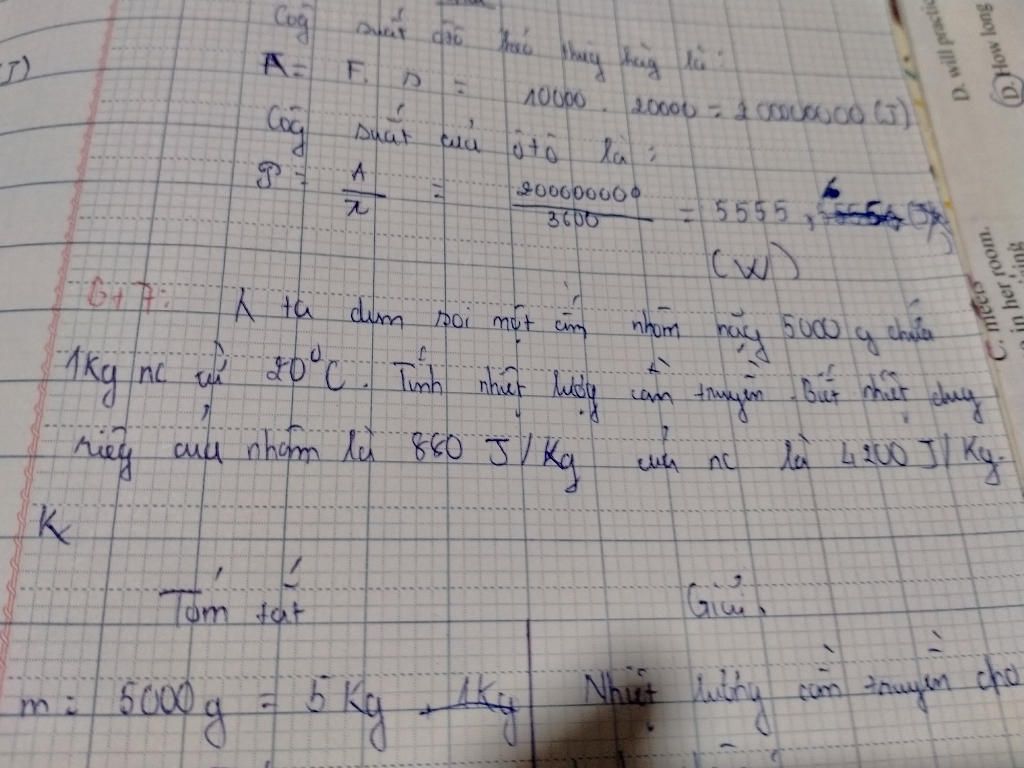 Côg suất của
A = F. s = 10000 . 20000 = 200000000 (J)
Côg suất của ôtô là :
P = A/t = 200000000/3600 = 5555,6
(W)
6+7: Ng ta dùm soi một ấm nhôm nặg 5000 g chứa
1Kg nc ở 20°C. Tính nhiệt lượg cần truyền. Biết nhiệt dug
riêg của nhôm là 880 J/Kg của nc là 4200 J/Kg.
K
Tóm tắt
Giải.
m = 5000g = 5 Kg 1Kg
Nhiệt lượg cần truyền cho
D. will practice
D. How long
C. meets
in her room.